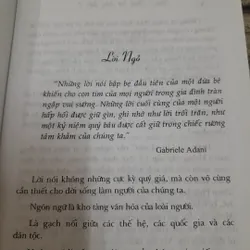 Lời Ngỏ
"Những lời nói bập bẹ đầu tiên của một đứa bé
khiến cho con tim của mọi người trong gia đình tràn
ngập vui sướng. Những lời cuối cùng của một người
hấp hối được giữ gìn, ghi nhớ như lời trối trăn, như
một kỷ niệm quý báu được cất giữ trong chiếc rương
tẩm khảm của chúng ta."
Gabriele Adani
Lời nói không những cực kỳ quý giá, mà còn vô cùng
cần thiết cho đời sống làm người của chúng ta.
Ngôn ngữ là kho tàng văn hóa của loài người.
Là gạch nối giữa các thế hệ, các quốc gia và các
dân tộc.